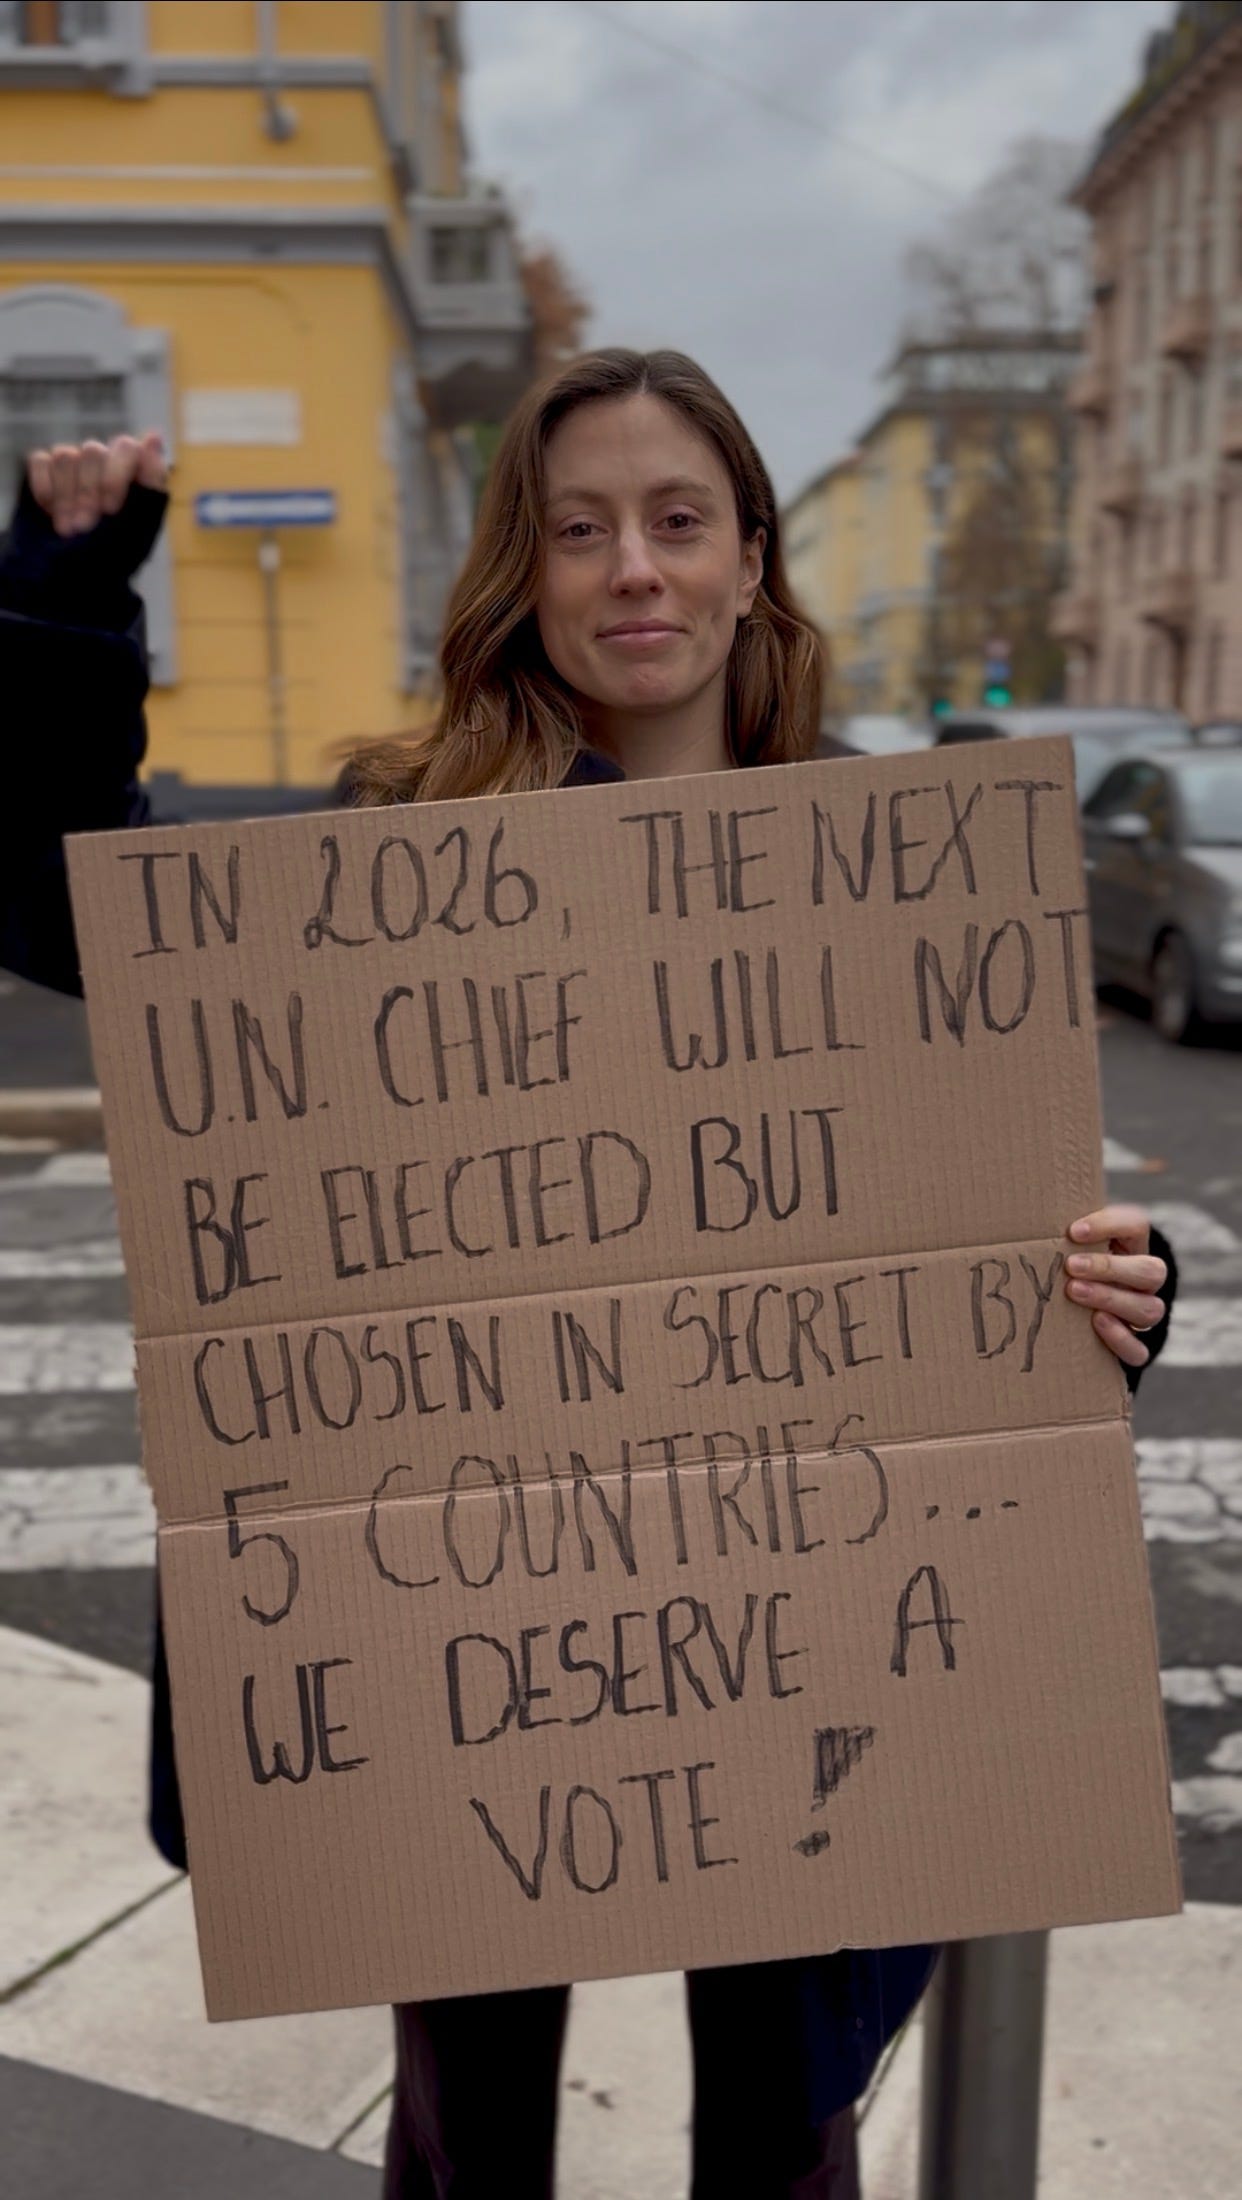 IN 2026, THE NEXT
U.N. CHIEF WILL NOT
BE ELECTED BUT
CHOSEN IN SECRET BY
5 COUNTRIES...
WE DESERVE A
VOTE!